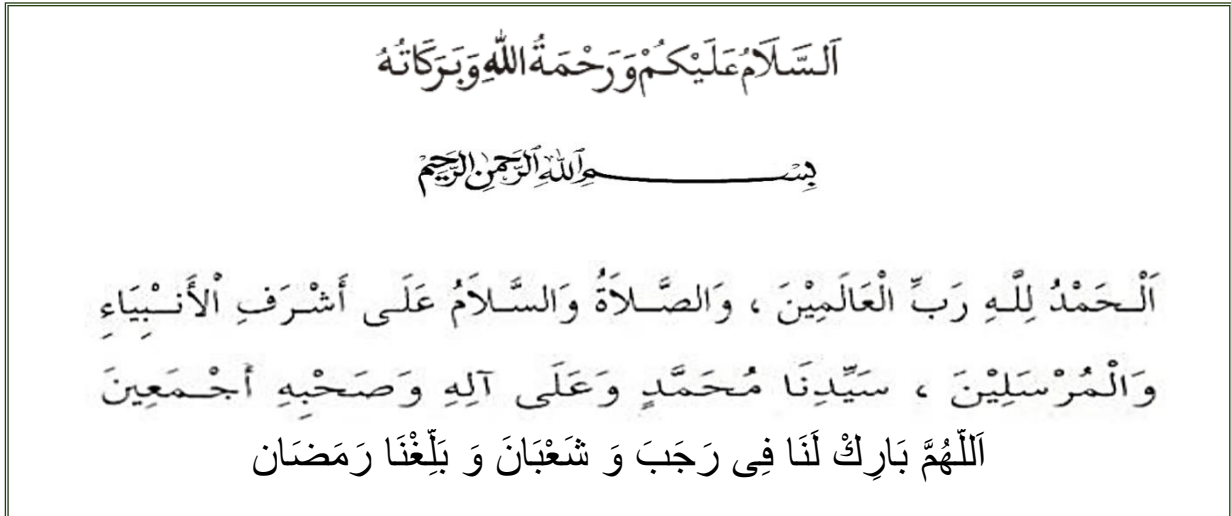 اَلسَّلَامُ عَلَيْكُمْ وَرَحْمَةُ اللهِ وَبَرَكَاتُهُ
بِسْمِ ٱللَّهِ ٱلرَّحْمَٰنِ ٱلرَّحِيمِ
اَلْـحَمْدُ لِلَّـهِ رَبِّ الْعَالَمِيْنَ ، وَالصَّـلاَةُ وَالسَّـلاَمُ عَلَـى أَشْـرَفِ اْلأَنــْبِيَاءِ
وَالْـمُرْسَلِيْنَ ، سَيِّدِنَا مُـحَمَّدٍ وَعَلَى آلِهِ وَصَحْبِهِ أَجْـمَعِينَ
اَللّهُمَّ بَارِكْ لَنَا فِى رَجَبَ وَ شَعْبَانَ وَ بَلِّغْنَا رَمَضَان